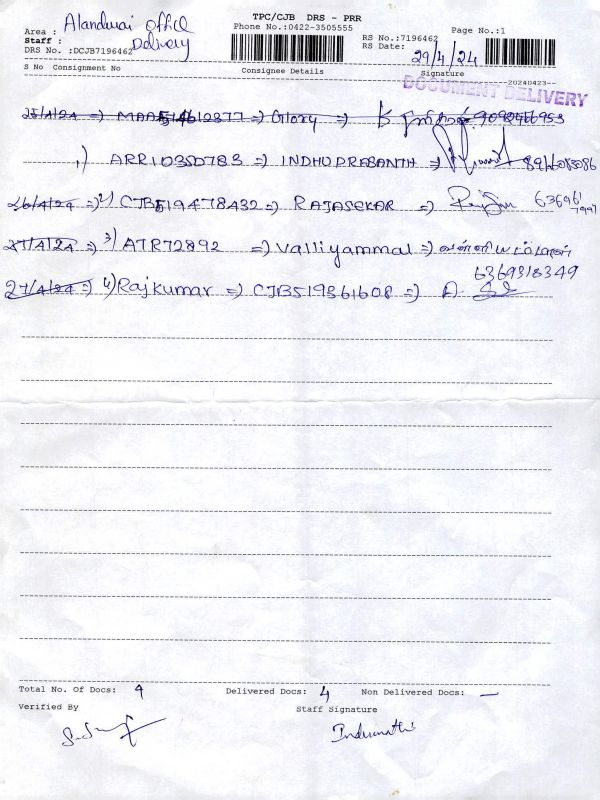 TPC/CJB DRS - PRR
Area : Alandurai office
Phone No.:0422-3505555
Page No.:1
Staff : Delivery
RS No.:7196462
DRS No. :DCJB7196462
RS Date: 29/4/24
S No Consignment No Consignee Details Signature
--20240423--
DOCUMENT DELIVERY
25/4/24 => => Glory => K 9092466953
1) ARR10350783 => INDHU PRASANTH =>
26/4/24 => 2) CJB519478432 => RAJASEKAR =>
27/4/24 => 3) ATR72892 => Valliyammal => வள்ளியம்மாள்
6369318349
27/4/24 => 4) Rajkumar => CJB519361608 => A.
Total No. Of Docs: 4 Delivered Docs: 4 Non Delivered Docs: —
Verified By Staff Signature
Indumathi